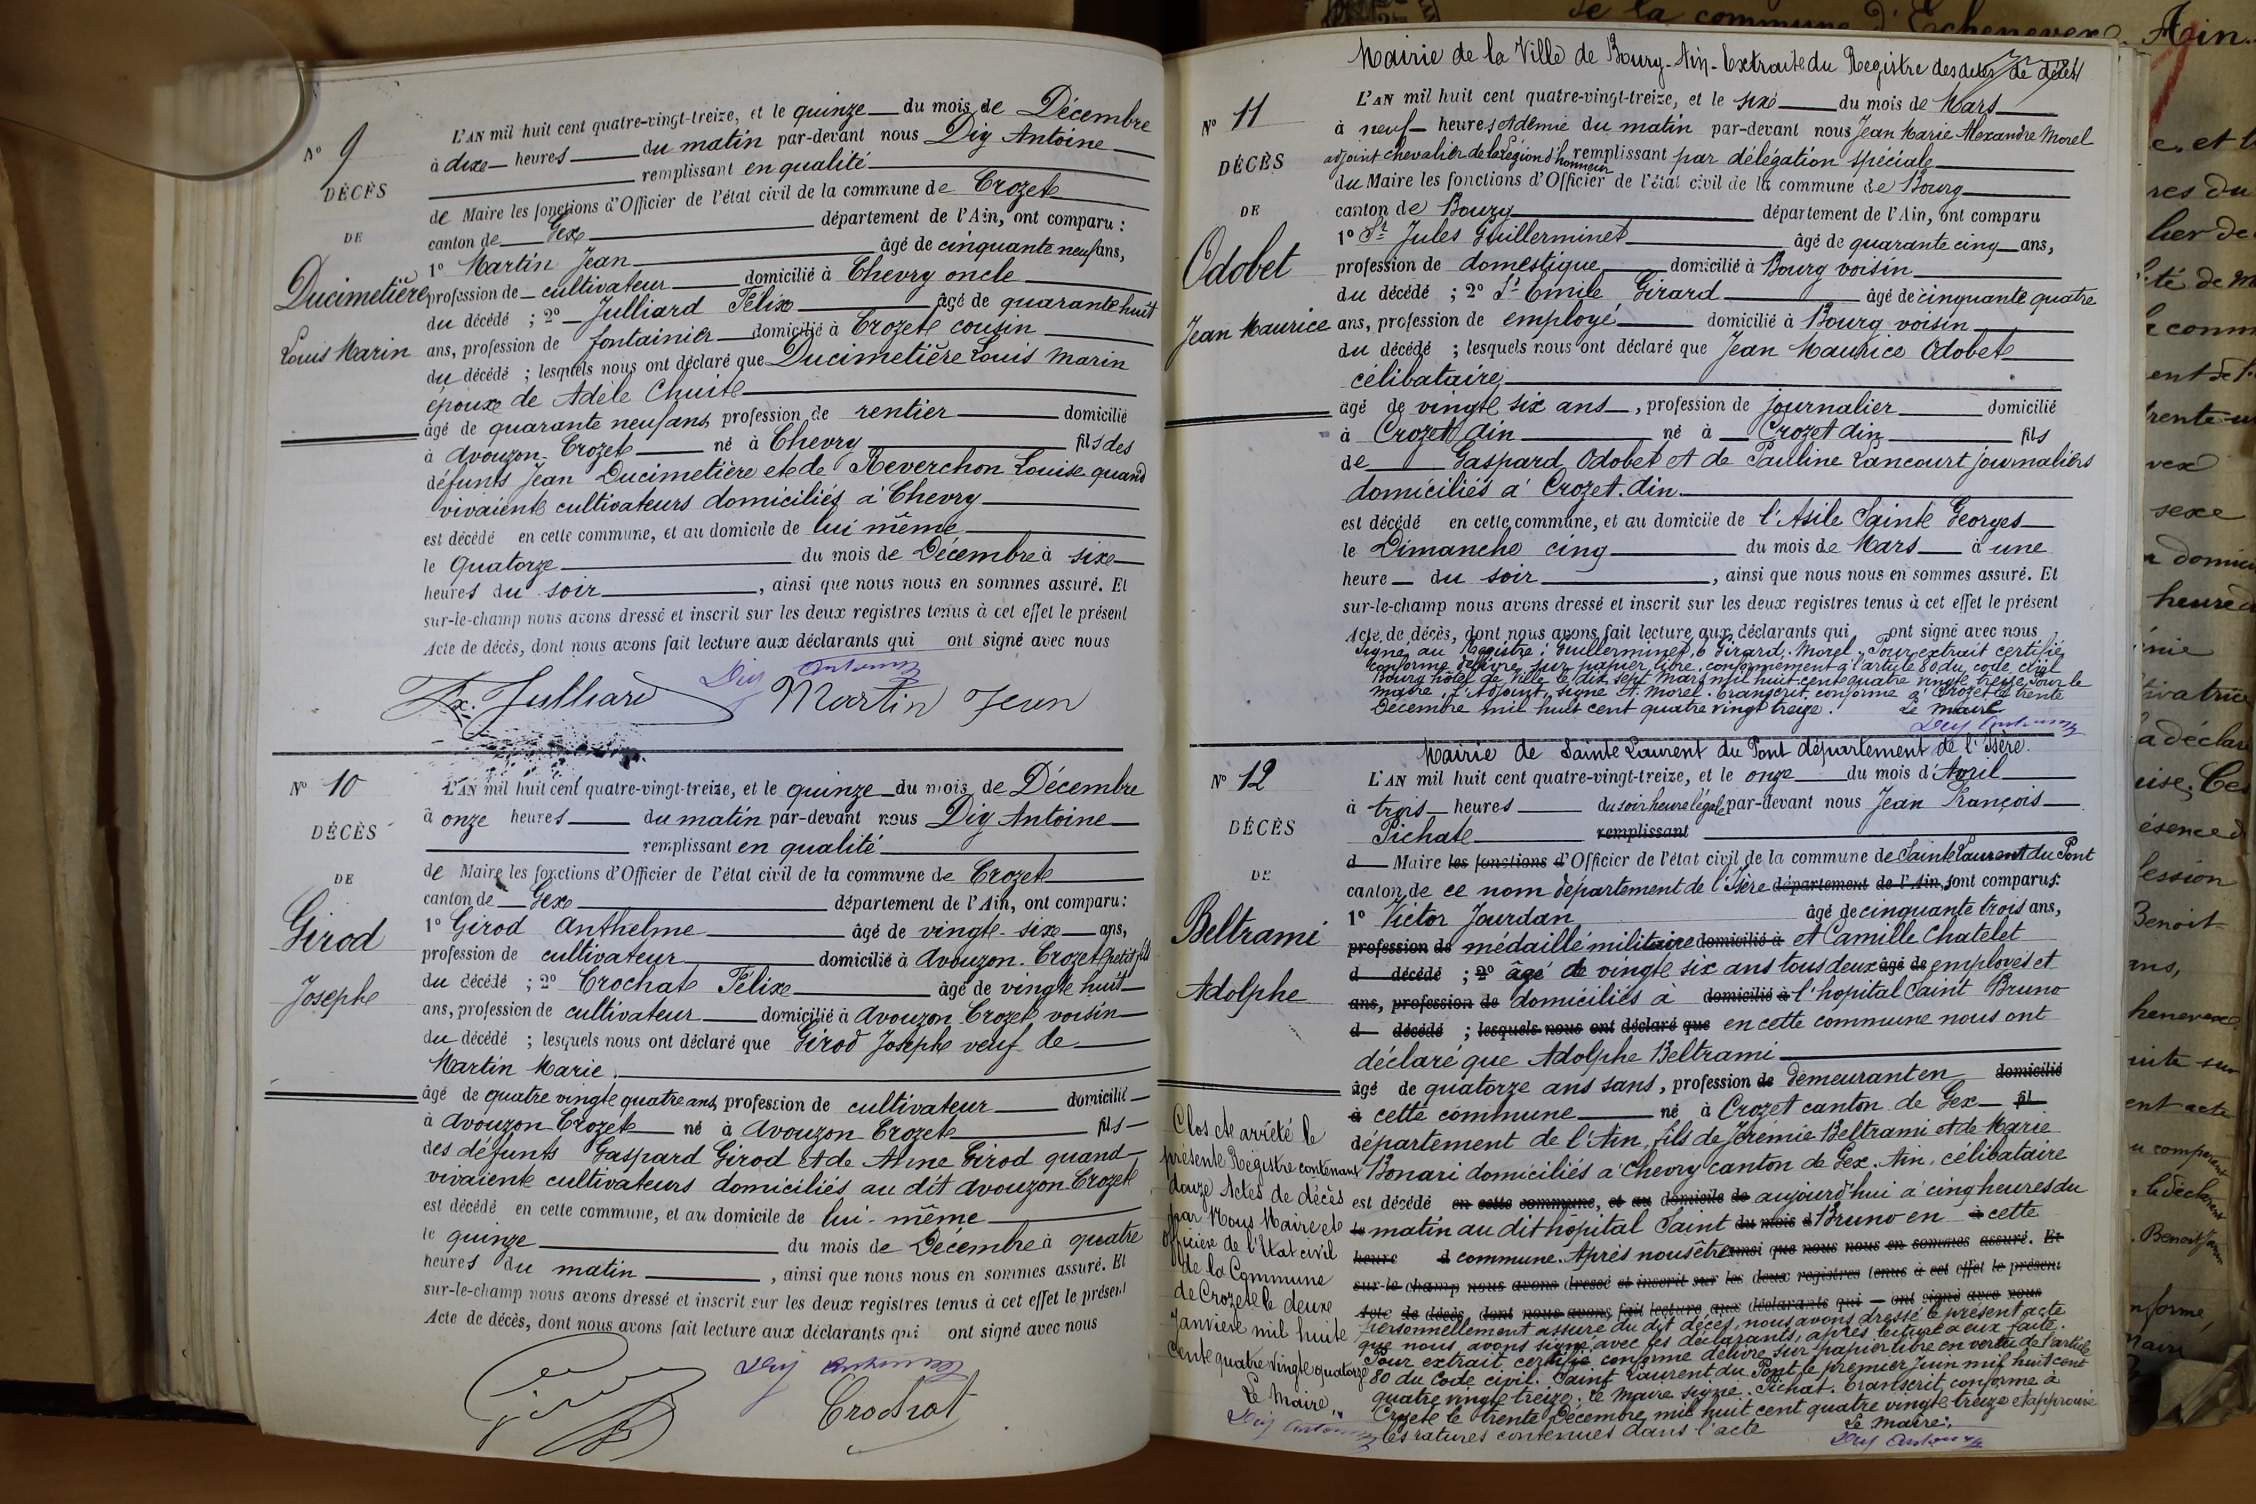 Nº 9
DÉCÈS
DE
Ducimetière
Louis Marin
L'AN mil huit cent quatre-vingt-treize, et le quinze du mois de Décembre
à dix heures du matin par-devant nous Diy Antoine
remplissant en qualité
de Maire les fonctions d'Officier de l'état civil de la commune de Crozet
canton de Gex département de l'Ain, ont comparu :
1º Martin Jean âgé de cinquante neuf ans,
profession de cultivateur domicilié à Chevry oncle
du décédé ; 2º Julliard Félix âgé de quarante huit
ans, profession de fontainier domicilié à Crozet cousin
du décédé ; lesquels nous ont déclaré que Ducimetière Louis Marin
époux de Adèle Chuit
âgé de quarante neuf ans profession de rentier domicilié
à Avouzon-Crozet né à Chevry fils des
défunts Jean Ducimetière et de Reverchon Louise quand
vivaient cultivateurs domiciliés à Chevry
est décédé en cette commune, et au domicile de lui même
le Quatorze du mois de Décembre à six
heures du soir , ainsi que nous nous en sommes assuré. Et
sur-le-champ nous avons dressé et inscrit sur les deux registres tenus à cet effet le présent
Acte de décès, dont nous avons fait lecture aux déclarants qui ont signé avec nous
Diy Antoine
Fx. Julliard Martin Jean
Nº 10
DÉCÈS
DE
Girod
Joseph
L'AN mil huit cent quatre-vingt-treize, et le quinze du mois de Décembre
à onze heures du matin par-devant nous Diy Antoine
remplissant en qualité
de Maire les fonctions d'Officier de l'état civil de la commune de Crozet
canton de Gex département de l'Ain, ont comparu :
1º Girod Anthelme âgé de vingt-six ans,
profession de cultivateur domicilié à Avouzon-Crozet petit fils
du décédé ; 2º Crochat Félix âgé de vingt huit
ans, profession de cultivateur domicilié à Avouzon-Crozet voisin
du décédé ; lesquels nous ont déclaré que Girod Joseph veuf de
Martin Marie
âgé de quatre vingt quatre ans profession de cultivateur domicilié
à Avouzon Crozet né à Avouzon-Crozet fils
des défunts Gaspard Girod et de Anne Girod quand
vivaient cultivateurs domiciliés au dit Avouzon-Crozet
est décédé en cette commune, et au domicile de lui-même
le quinze du mois de Décembre à quatre
heures du matin , ainsi que nous nous en sommes assuré. Et
sur-le-champ nous avons dressé et inscrit sur les deux registres tenus à cet effet le présent
Acte de décès, dont nous avons fait lecture aux déclarants qui ont signé avec nous
Diy Antoine
Crochat
Mairie de la Ville de Bourg-Ain-Extrait du Registre des actes de décès
Nº 11
DÉCÈS
DE
Odobet
Jean Maurice
L'AN mil huit cent quatre-vingt-treize, et le six du mois de Mars
à neuf heures et demie du matin par-devant nous Jean Marie Alexandre Morel
adjoint chevalier de la légion d'honneur remplissant par délégation spéciale
du Maire les fonctions d'Officier de l'état civil de la commune de Bourg
canton de Bourg département de l'Ain, ont comparu
1º Sr Jules Guillerminet âgé de quarante cinq ans,
profession de domestique domicilié à Bourg voisin
du décédé ; 2º Sr Emile Girard âgé de cinquante quatre
ans, profession de employé domicilié à Bourg voisin
du décédé ; lesquels nous ont déclaré que Jean Maurice Odobet
célibataire
âgé de vingt six ans , profession de journalier domicilié
à Crozet Ain né à Crozet Ain fils
de Gaspard Odobet et de Pauline Lancourt journaliers
domiciliés à Crozet. Ain.
est décédé en cette commune, et au domicile de l'Asile Saint Georges
le Dimanche cinq du mois de Mars à une
heure du soir , ainsi que nous nous en sommes assuré. Et
sur-le-champ nous avons dressé et inscrit sur les deux registres tenus à cet effet le présent
Acte de décès, dont nous avons fait lecture aux déclarants qui ont signé avec nous
Signé au Registre : Guillerminet, E Girard. Morel. Pour extrait certifié
conforme délivré sur papier libre, conformément à l'article 80 du code civil
Bourg hôtel de Ville le dix sept Mars mil huit cent quatre vingt treize. Pour le
maire, l'Adjoint, signé A. Morel. Transcrit conforme à Crozet le trente
Décembre mil huit cent quatre vingt treize. Le maire
Diy Antoine
Mairie de Saint Laurent du Pont département de l'Isère.
Nº 12
DÉCÈS
DE
Beltrami
Adolphe
L'AN mil huit cent quatre-vingt-treize, et le onze du mois d'Avril
à trois heures du soir heure légale par-devant nous Jean François
Pichat remplissant
d Maire les fonctions d'Officier de l'état civil de la commune de Saint Laurent du Pont
canton de ce nom département de l'Isère département de l'Ain, ont comparus:
1º Victor Jourdan âgé de cinquante trois ans,
profession de médaillé militaire domicilié à et Camille Chatelet
d décédé ; 2º âgé de vingt six ans tous deux âgé de employés et
ans, profession de domiciliés à domicilié à l'hopital Saint Bruno
d décédé ; lesquels nous ont déclaré que en cette commune nous ont
déclaré que Adolphe Beltrami
âgé de quatorze ans sans , profession de demeurant en domicilié
à cette commune né à Crozet canton de Gex fil
département de l'Ain, fils de Jérémie Beltrami et de Marie
Bonari domiciliés à Chevry canton de Gex. Ain, célibataire
est décédé en cette commune, et au domicile de aujourd'hui à cinq heures du
le matin au dit hopital Saint du mois d Bruno en à cette
heure d commune. Après nous être ainsi que nous nous en sommes assuré. Et
sur-le-champ nous avons dressé et inscrit sur les deux registres tenus à cet effet le présent
Acte de décès, dont nous avons fait lecture aux déclarants qui ont signé avec nous
personnellement assuré du dit décès, nous avons dressé le présent acte
que nous avons signé avec les déclarants, après lecture à eux faite.
Pour extrait certifié conforme délivré sur papier libre en vertu de l'article
80 du Code civil. Saint Laurent du Pont le premier Juin mil huit cent
quatre vingt treize. Le Maire signé. Pichat. Transcrit conforme à
Crozet le trente Décembre mil huit cent quatre vingt treize et approuvé
les ratures contenues dans l'acte Le Maire,
Diy Antoine
Clos et arrêté le
présent Registre contenant
douze Actes de décès
par Nous Maire et
Officier de l'Etat civil
de la Commune
de Crozet le deux
Janvier mil huit
cent quatre vingt quatorze
Le Maire,
Diy Antoine